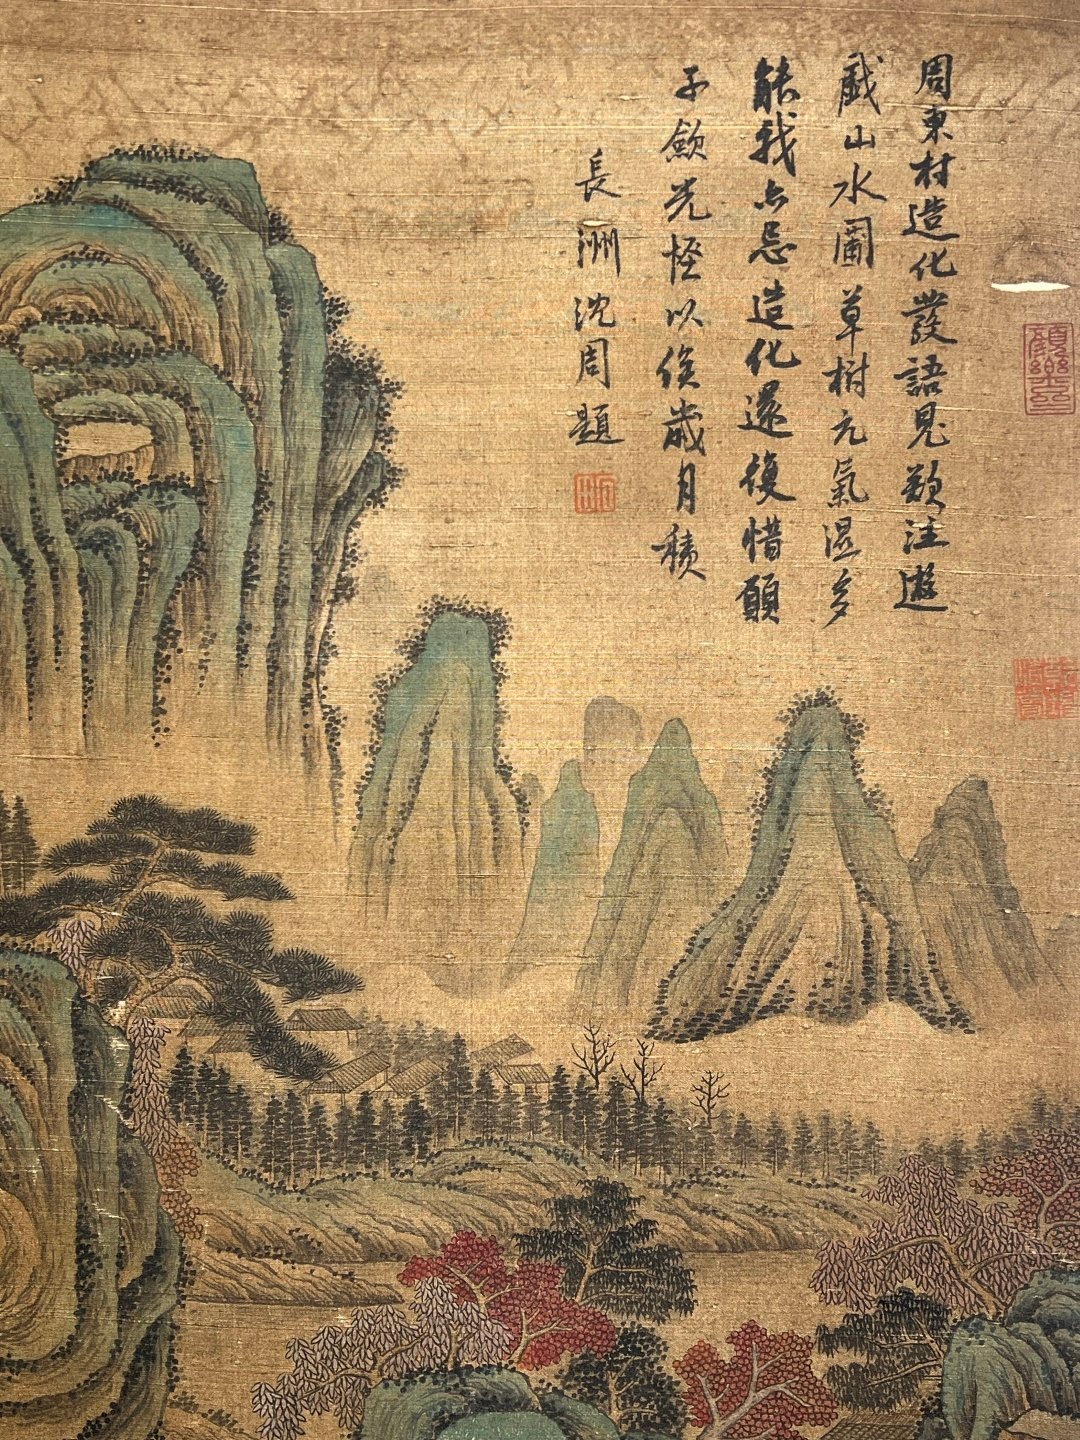 周東村造化發語見歎注遊
戲山水圖草樹元氣濕多
能我亦忌造化還復惜願
子斂光怪以俟歲月積
長洲沈周題